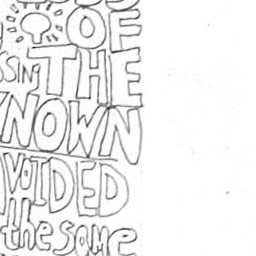 OE
SSING THE
NOWN
VOIDED
the same